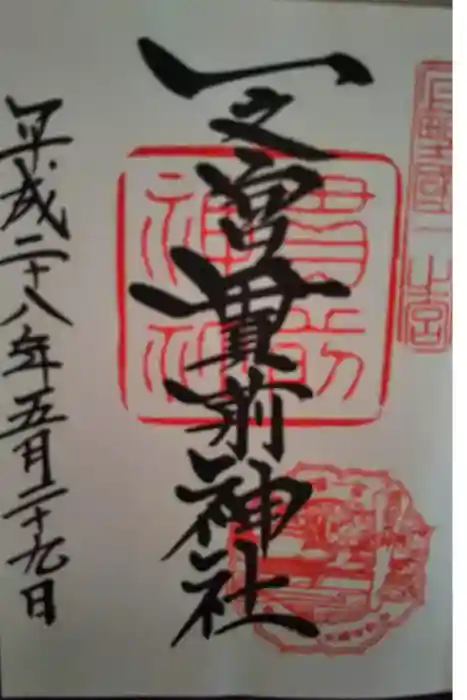 上野國一之宮
一之宮貫前神社
貫前
神社
平成二十八年五月二十九日